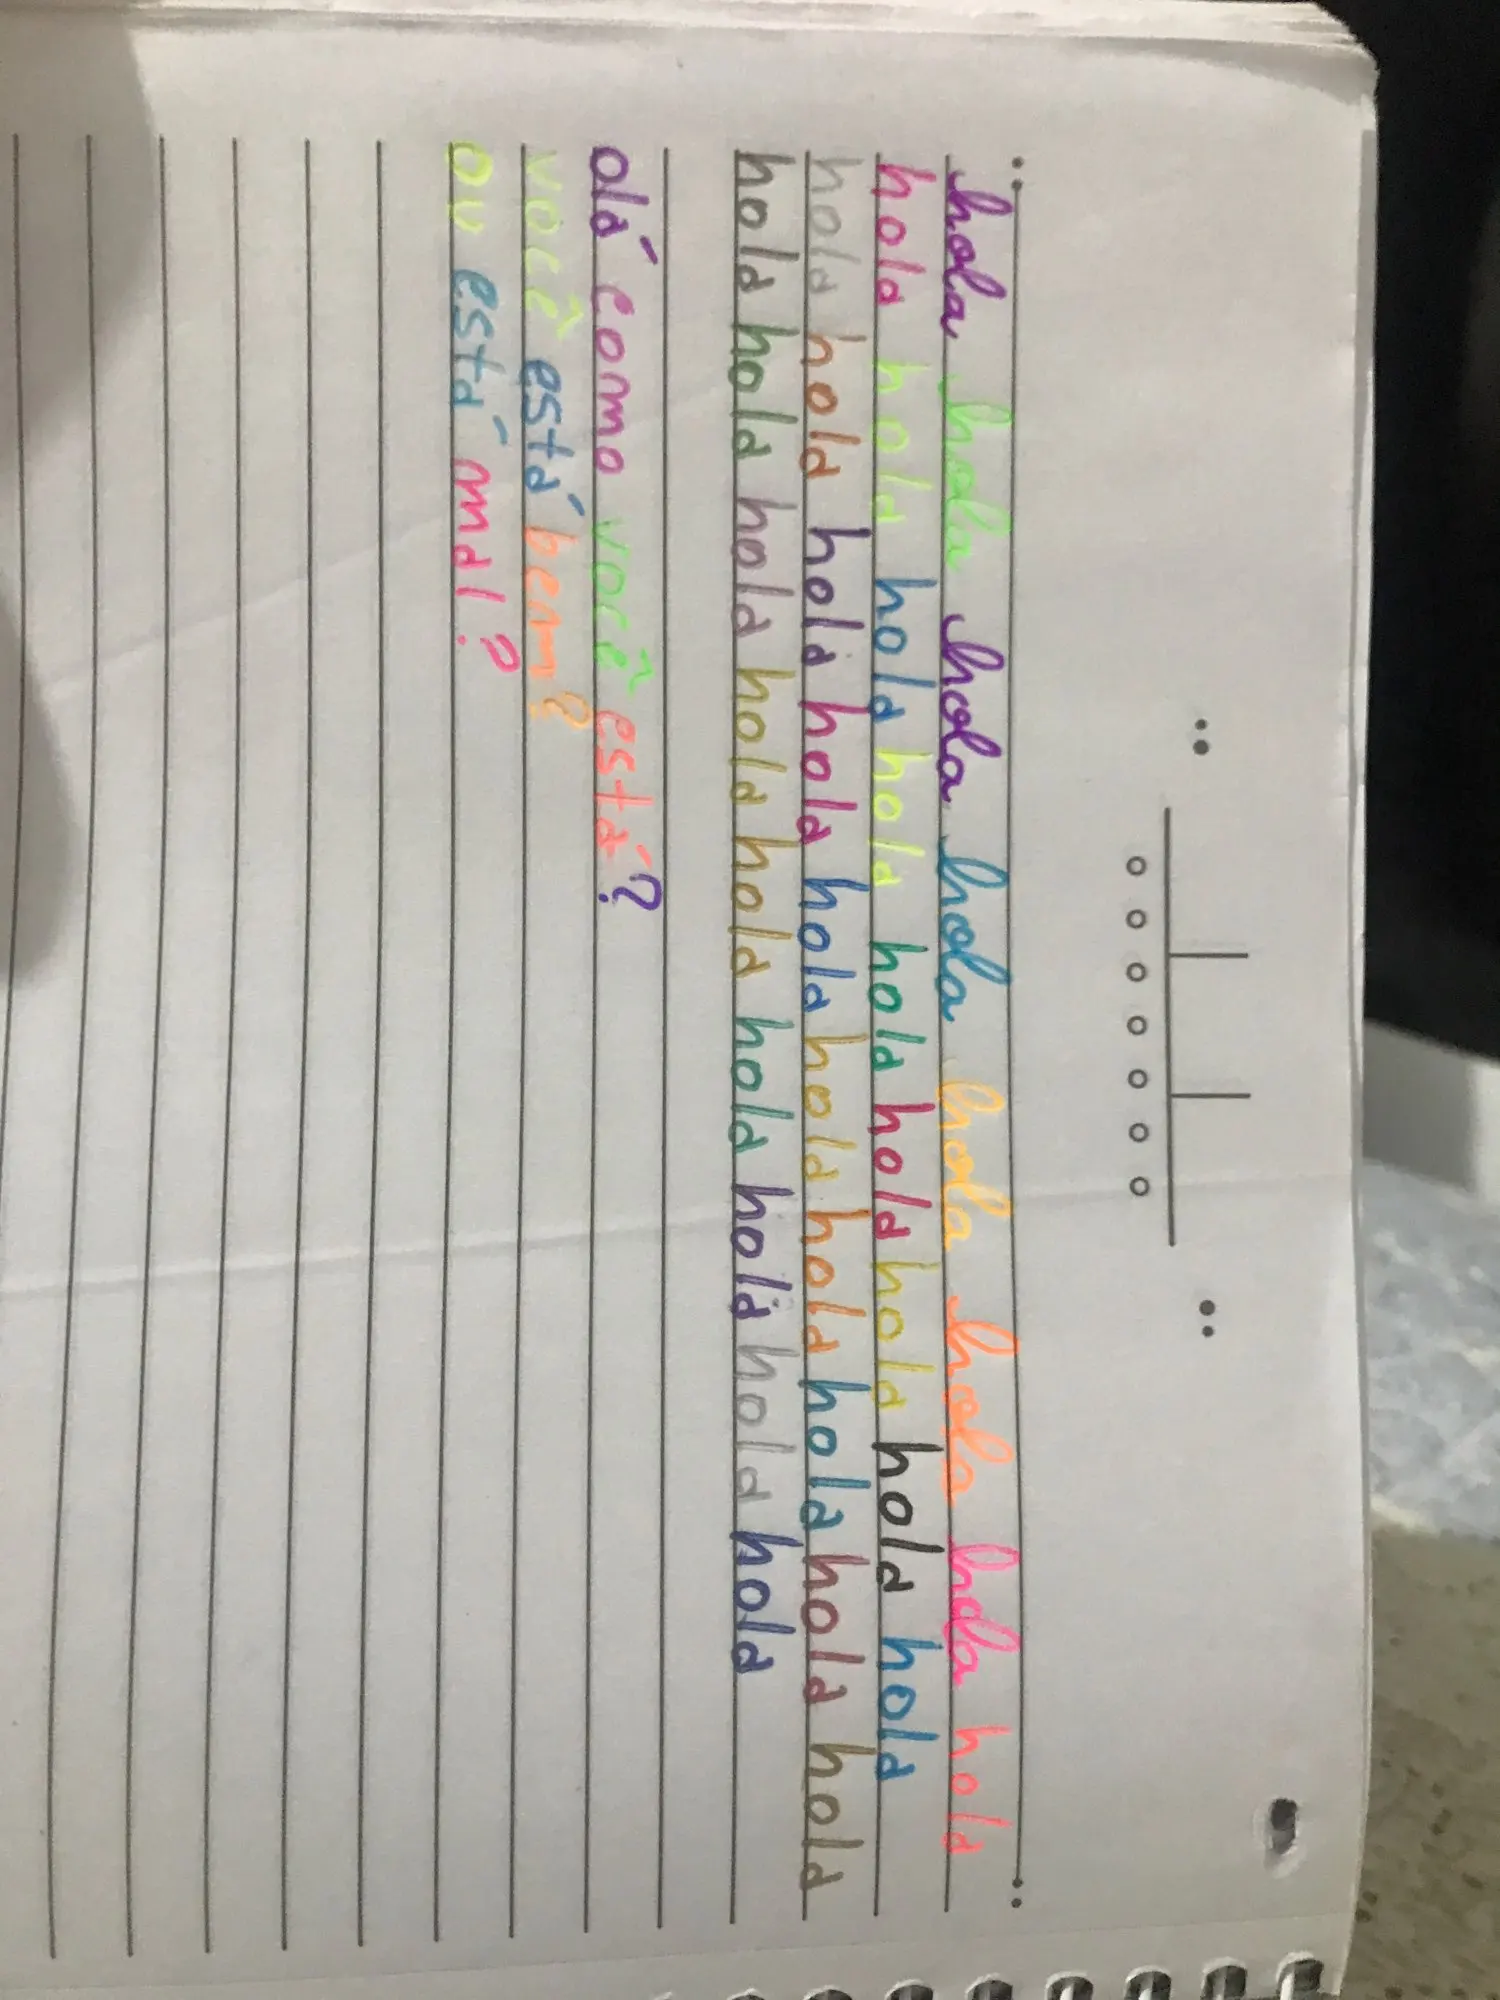 hola hola hola hola hola hola hola hola
hola hola hola hola hola hola hola hola hola
hola hola hola hola hola hola hola hola hola hola
hola hola hola hola hola hola hola hola hola
olá como você está?
você está bem?
ou está mal?